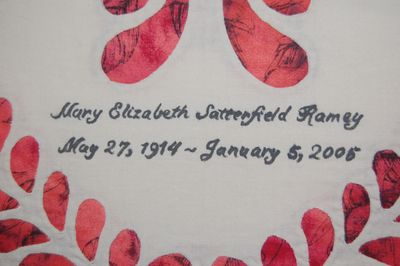 Mary Elizabeth Satterfield Ramey
May 27, 1914 ~ January 5, 2005